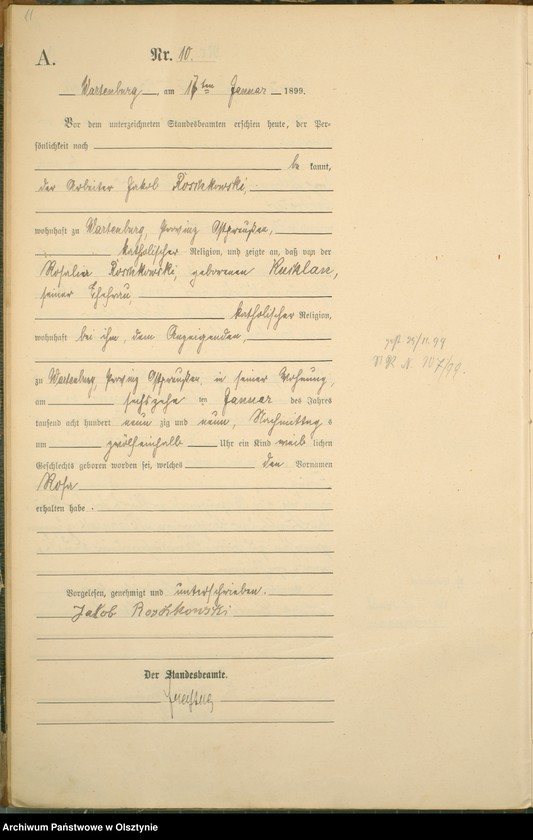 11
A.
Nr. 10.
Wartenburg, am 17ten Januar 1899.
Vor dem unterzeichneten Standesbeamten erschien heute, der Per-
sönlichkeit nach
be kannt,
der Arbeiter Jakob Roschkowski,
wohnhaft zu Wartenburg, Provinz Ostpreußen,
katholischer Religion, und zeigte an, daß von der
Rosalia Roschkowski, geborenen
seiner Ehefrau,
katholischer Religion,
wohnhaft bei ihm, dem Anzeigenden,
zu Wartenburg, Provinz Ostpreußen, in seiner Wohnung,
am sechszehn ten Januar des Jahres
tausend acht hundert neun zig und neun, Nachmittag s
um zwölfeinhalb Uhr ein Kind weib lichen
Geschlechts geboren worden sei, welches den Vornamen
Rosa
erhalten habe.
Vorgelesen, genehmigt und unterschrieben.
Jakob Roschkowski
Der Standesbeamte.
Archiwum Państwowe w Olsztynie